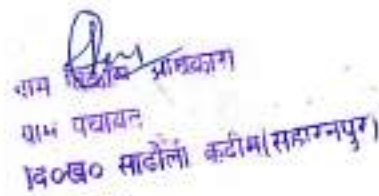 ग्राम विकास अधिकारी
ग्राम पंचायत
वि०ख० साढौली कदीम(सहारनपुर)